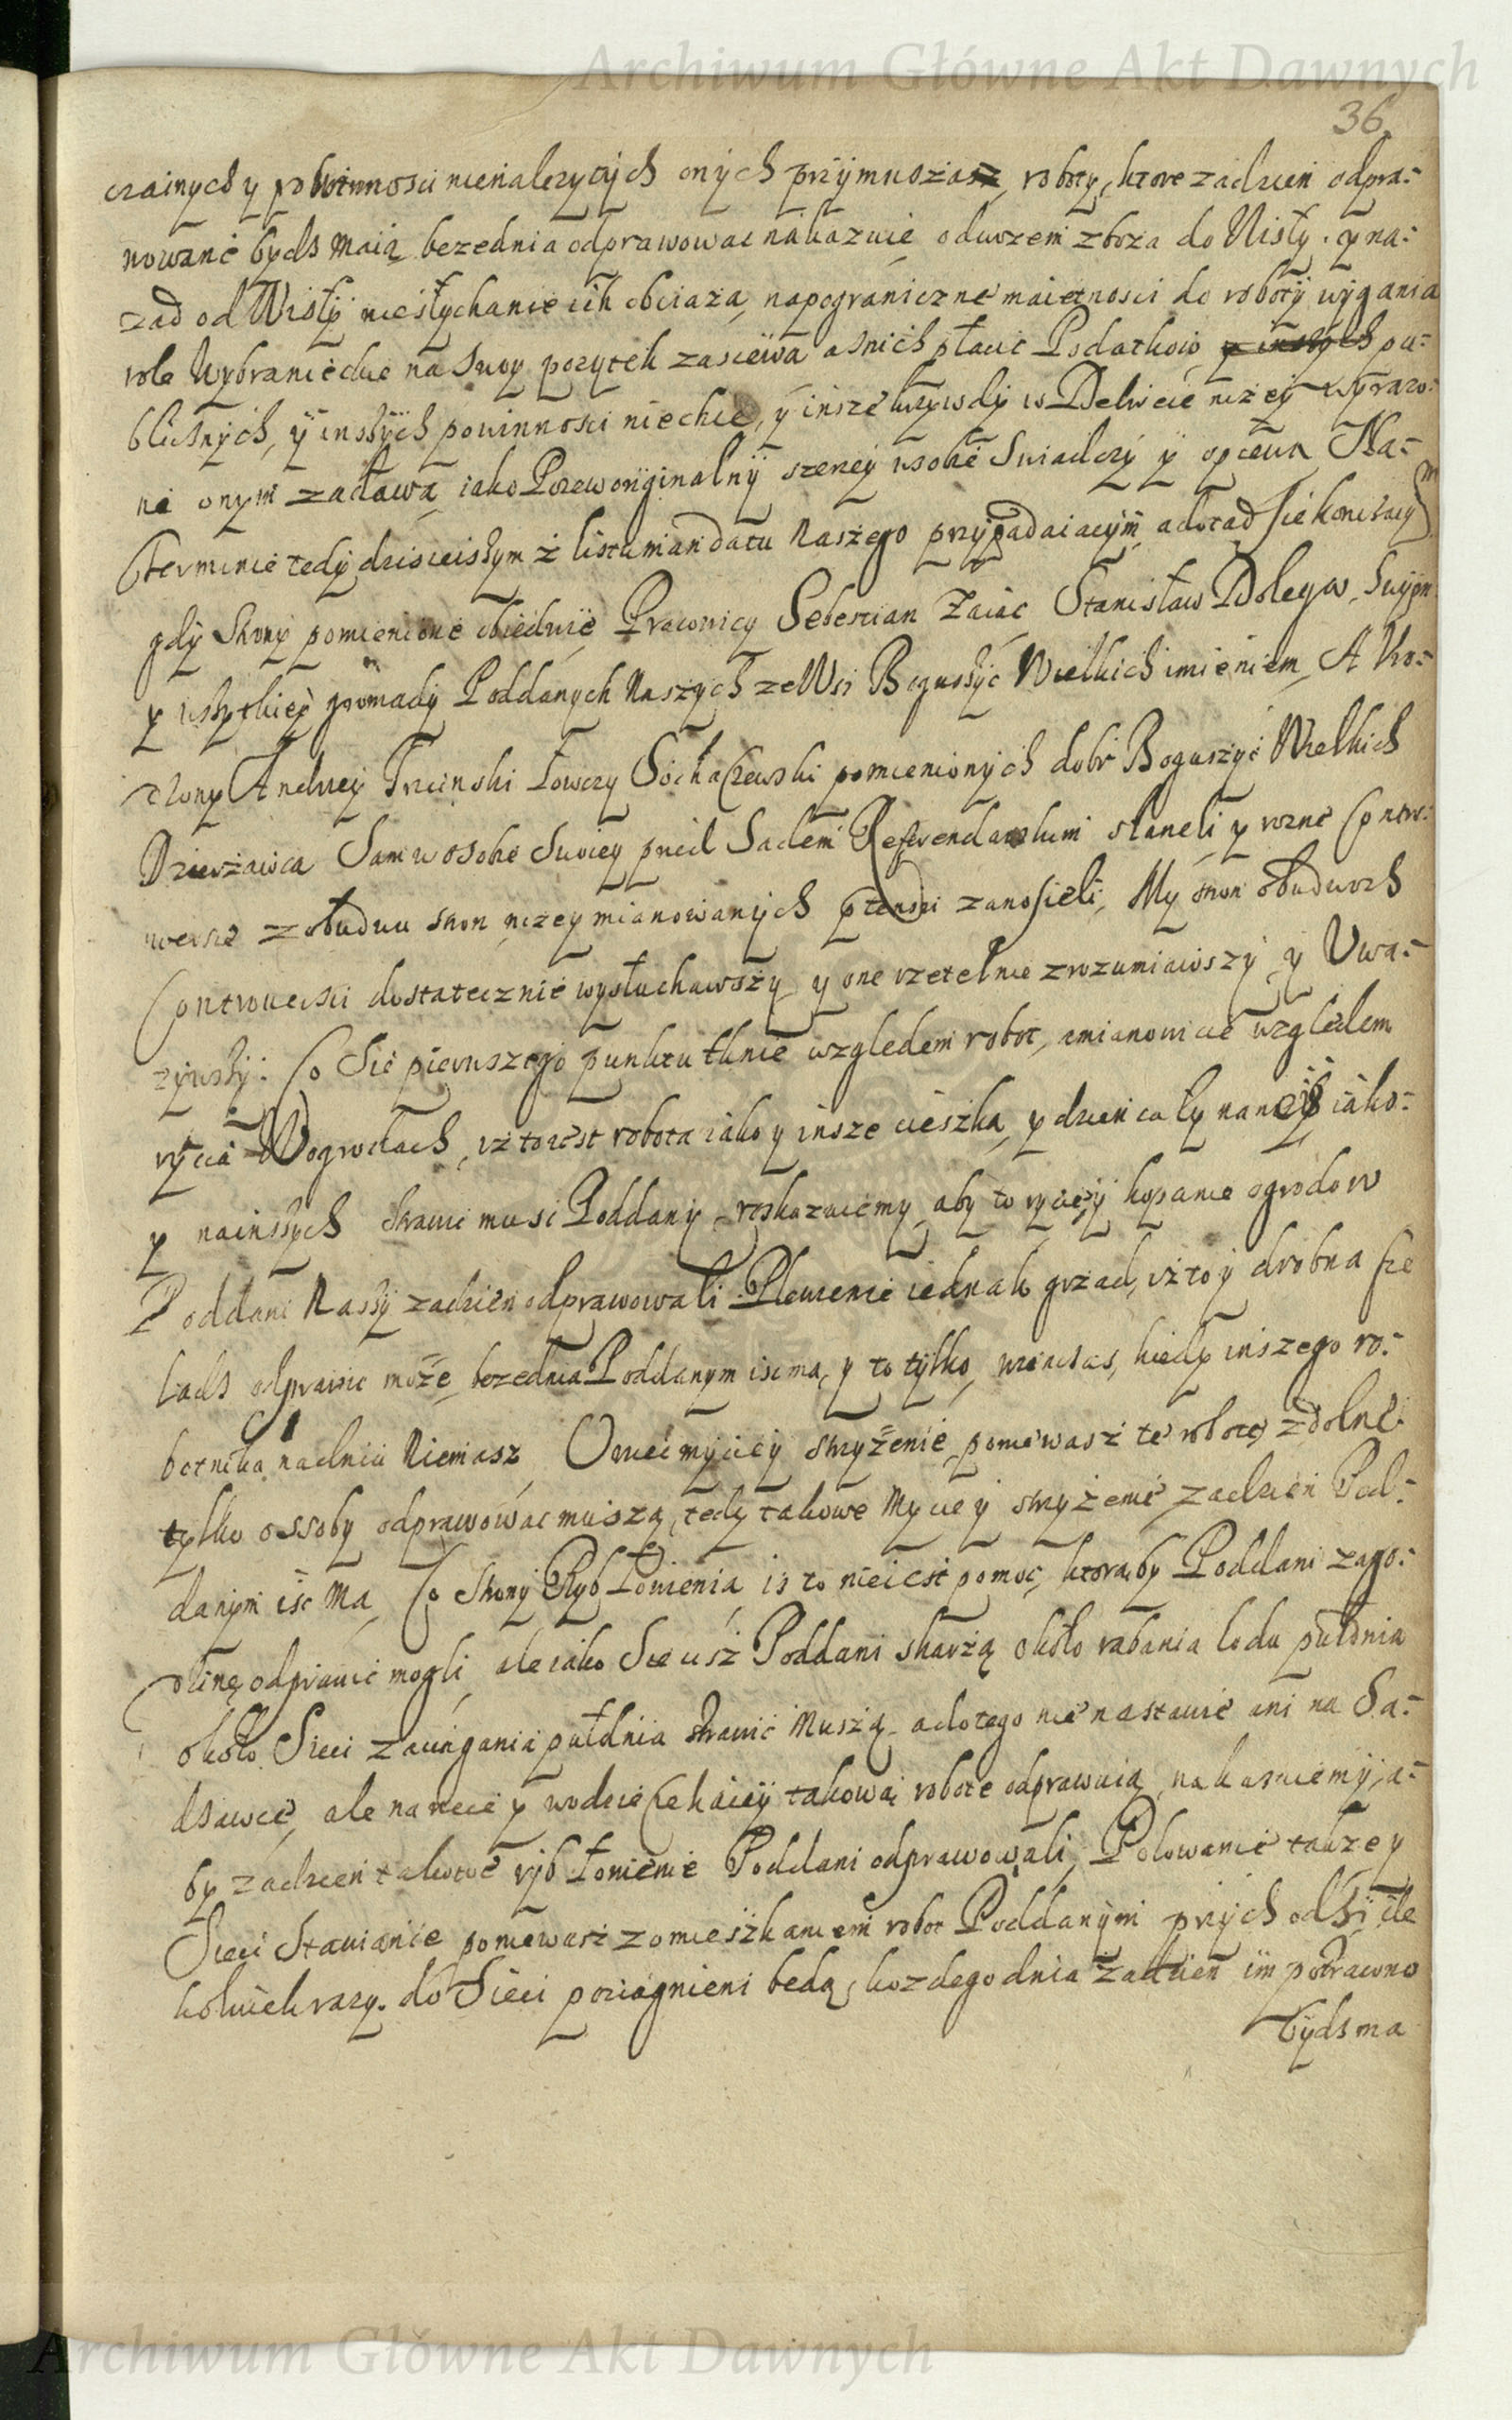 Archiwum Główne Akt Dawnych
36.
czainych y powinnosci nienalezytych onych przymuszaiąc, roboty, ktore zadzien odpra-
wowane bydz maią, bezednia odprawowac nakazuie, odwozem zboza do Wisły. y na-
zad od Wisły niesłychanie ich obciaza, napograniczne maietnosci do roboty wygania
role Wybranieckie na swoy pozytek zasiewa a snich płacic Podatkow, pu-
blicznych, y inszych powinnosci niechce, y insze krzywdy w Dekrecie nizey wyrazo-
ne onym zadawa, iako Pozew originalny szerzey wsobie Swiadczy y opiewa Na
Terminie tedy dzisieiszym z listu mandatu Naszego przypadaiacym, adotad sie konczacym
gdy Strony pomienione obiedwie, Pracowicy Sebestian Zaiac Stanisław Dolega, Swym
y wszytkiey gromady Poddanych Naszych ze Wsi Boguszyc Wielkich imieniem, A Uro-
dzony Andrzey Trcinski Łowczy Sochaczewski pomienionych dobr Boguszyc Wielkich
Dzierzawca Sam w osobie Swoiey przed Sadem Referendarskim staneli, y rozne Contro-
wersie z obudwu stron nizey mianowanych ptensii zanosieli, My stron obudwoch
Controuersii dostatecznie wysłuchawszy y one rzetelnie zrozumiawszy y Uwa-
zywszy: Co Sie pierwszego punktu tknie wzgledem robot, amianowicie wzgledem
rycia W ogrodach, iz to iest robota iako y insze cieszka, y dzien cały na niey iako
y nainszych strawic musi Poddany, roskazuiemy, aby to rycie y kopanie ogrodow
Poddani Naszy zadzien odprawowali. Plewienie iednak grzad, iz to y drobna Cze
ladz odprawic może, bezednia Poddanym isc ma, y to tylko, wten czas, kiedy inszego ro-
botnika nadniu Niemasz, Owiec mycie y strzyżenie, poniewasz te robote zdolne
tylko ossoby odprawowac muszą, tedy takowe Mycie y strzyżenie zadzien Pod-
danym isc Ma, Co strony Ryb Łowienia, is to nieiest pomoc, ktoraby Poddani zago-
dzinę odprawic mogli, ale iako Sie usz Poddani skarżą około rabania lodu pułdnia
około Sieci zaciagania pułdnia strawic Muszą, adotego nie nastawie ani na Sa-
dzawce, ale na rzece y wodzie Ciekacey takową robote odprawuią, nakazuiemy, a-
by zadzien takowe ryb Łowienie Poddani odprawowali, Polowanie takze y
Sieci Stawianie poniewasz z omieszkaniem robot Poddanym przychodzi, ile
kolwiek razy. do Sieci pociagnieni beda, kozdego dnia zadzien im potracono
bydz ma
Archiwum Główne Akt Dawnych